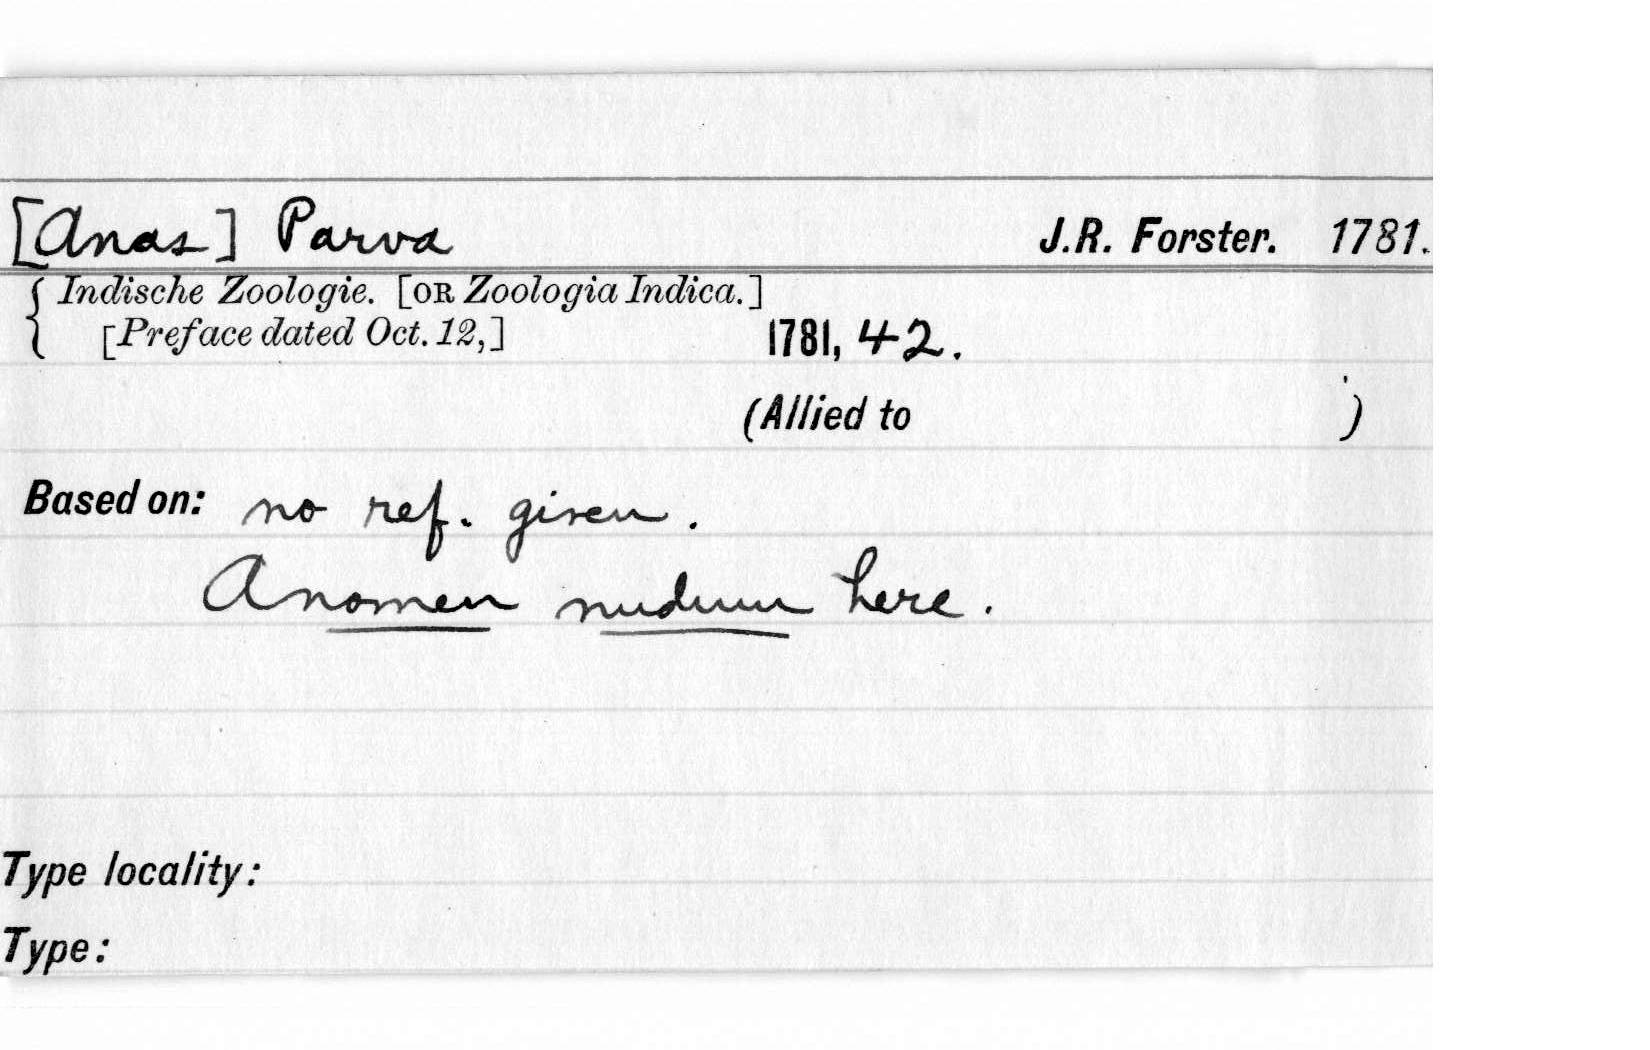 [Anas] Parva J.R. Forster. 1781.
{ Indische Zoologie. [OR Zoologia Indica.]
[Preface dated Oct. 12,] 1781, 42.
(Allied to )
Based on: no ref. given.
A nomen nudum here.
Type locality:
Type: